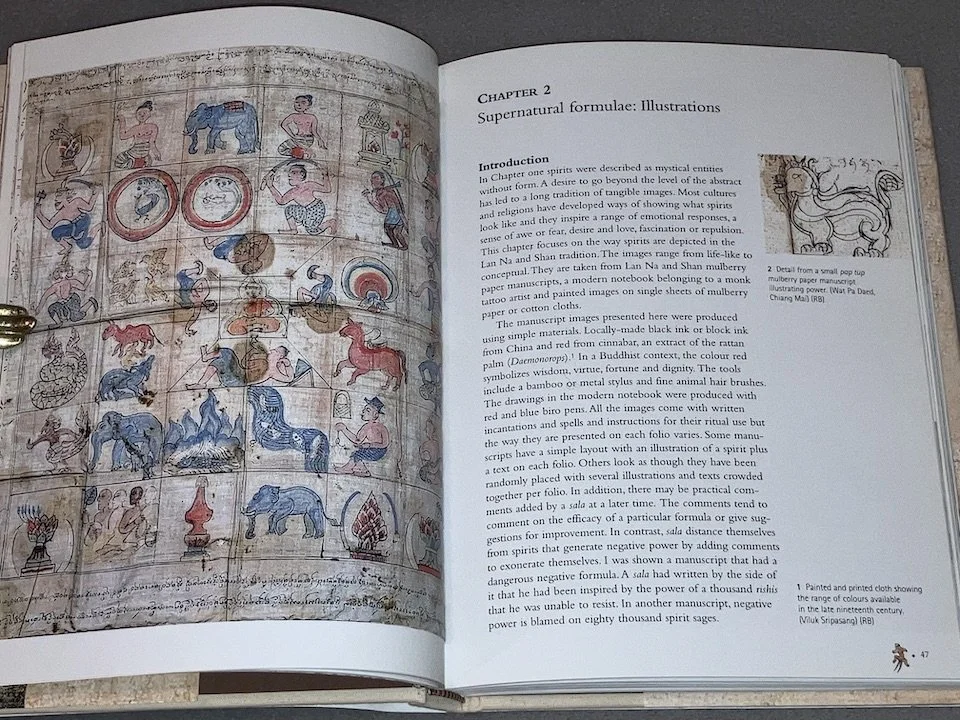 CHAPTER 2
Supernatural formulae: Illustrations
Introduction
In Chapter one spirits were described as mystical entities
without form. A desire to go beyond the level of the abstract
has led to a long tradition of tangible images. Most cultures
and religions have developed ways of showing what spirits
look like and they inspire a range of emotional responses, a
sense of awe or fear, desire and love, fascination or repulsion.
This chapter focuses on the way spirits are depicted in the
Lan Na and Shan tradition. The images range from life-like to
conceptual. They are taken from Lan Na and Shan mulberry
paper manuscripts, a modern notebook belonging to a monk
tattoo artist and painted images on single sheets of mulberry
paper or cotton cloths.
The manuscript images presented here were produced
using simple materials. Locally-made black ink or block ink
from China and red from cinnabar, an extract of the rattan
palm (Daemonorops).¹ In a Buddhist context, the colour red
symbolizes wisdom, virtue, fortune and dignity. The tools
include a bamboo or metal stylus and fine animal hair brushes.
The drawings in the modern notebook were produced with
red and blue biro pens. All the images come with written
incantations and spells and instructions for their ritual use but
the way they are presented on each folio varies. Some manu-
scripts have a simple layout with an illustration of a spirit plus
a text on each folio. Others look as though they have been
randomly placed with several illustrations and texts crowded
together per folio. In addition, there may be practical com-
ments added by a sala at a later time. The comments tend to
comment on the efficacy of a particular formula or give sug-
gestions for improvement. In contrast, sala distance themselves
from spirits that generate negative power by adding comments
to exonerate themselves. I was shown a manuscript that had a
dangerous negative formula. A sala had written by the side of
it that he had been inspired by the power of a thousand rishis
that he was unable to resist. In another manuscript, negative
power is blamed on eighty thousand spirit sages.
2 Detail from a small pop tup
mulberry paper manuscript
illustrating power. (Wat Pa Daed,
Chiang Mai) (RB)
1 Painted and printed cloth showing
the range of colours available
in the late nineteenth century.
(Viluk Sripasang) (RB)
47